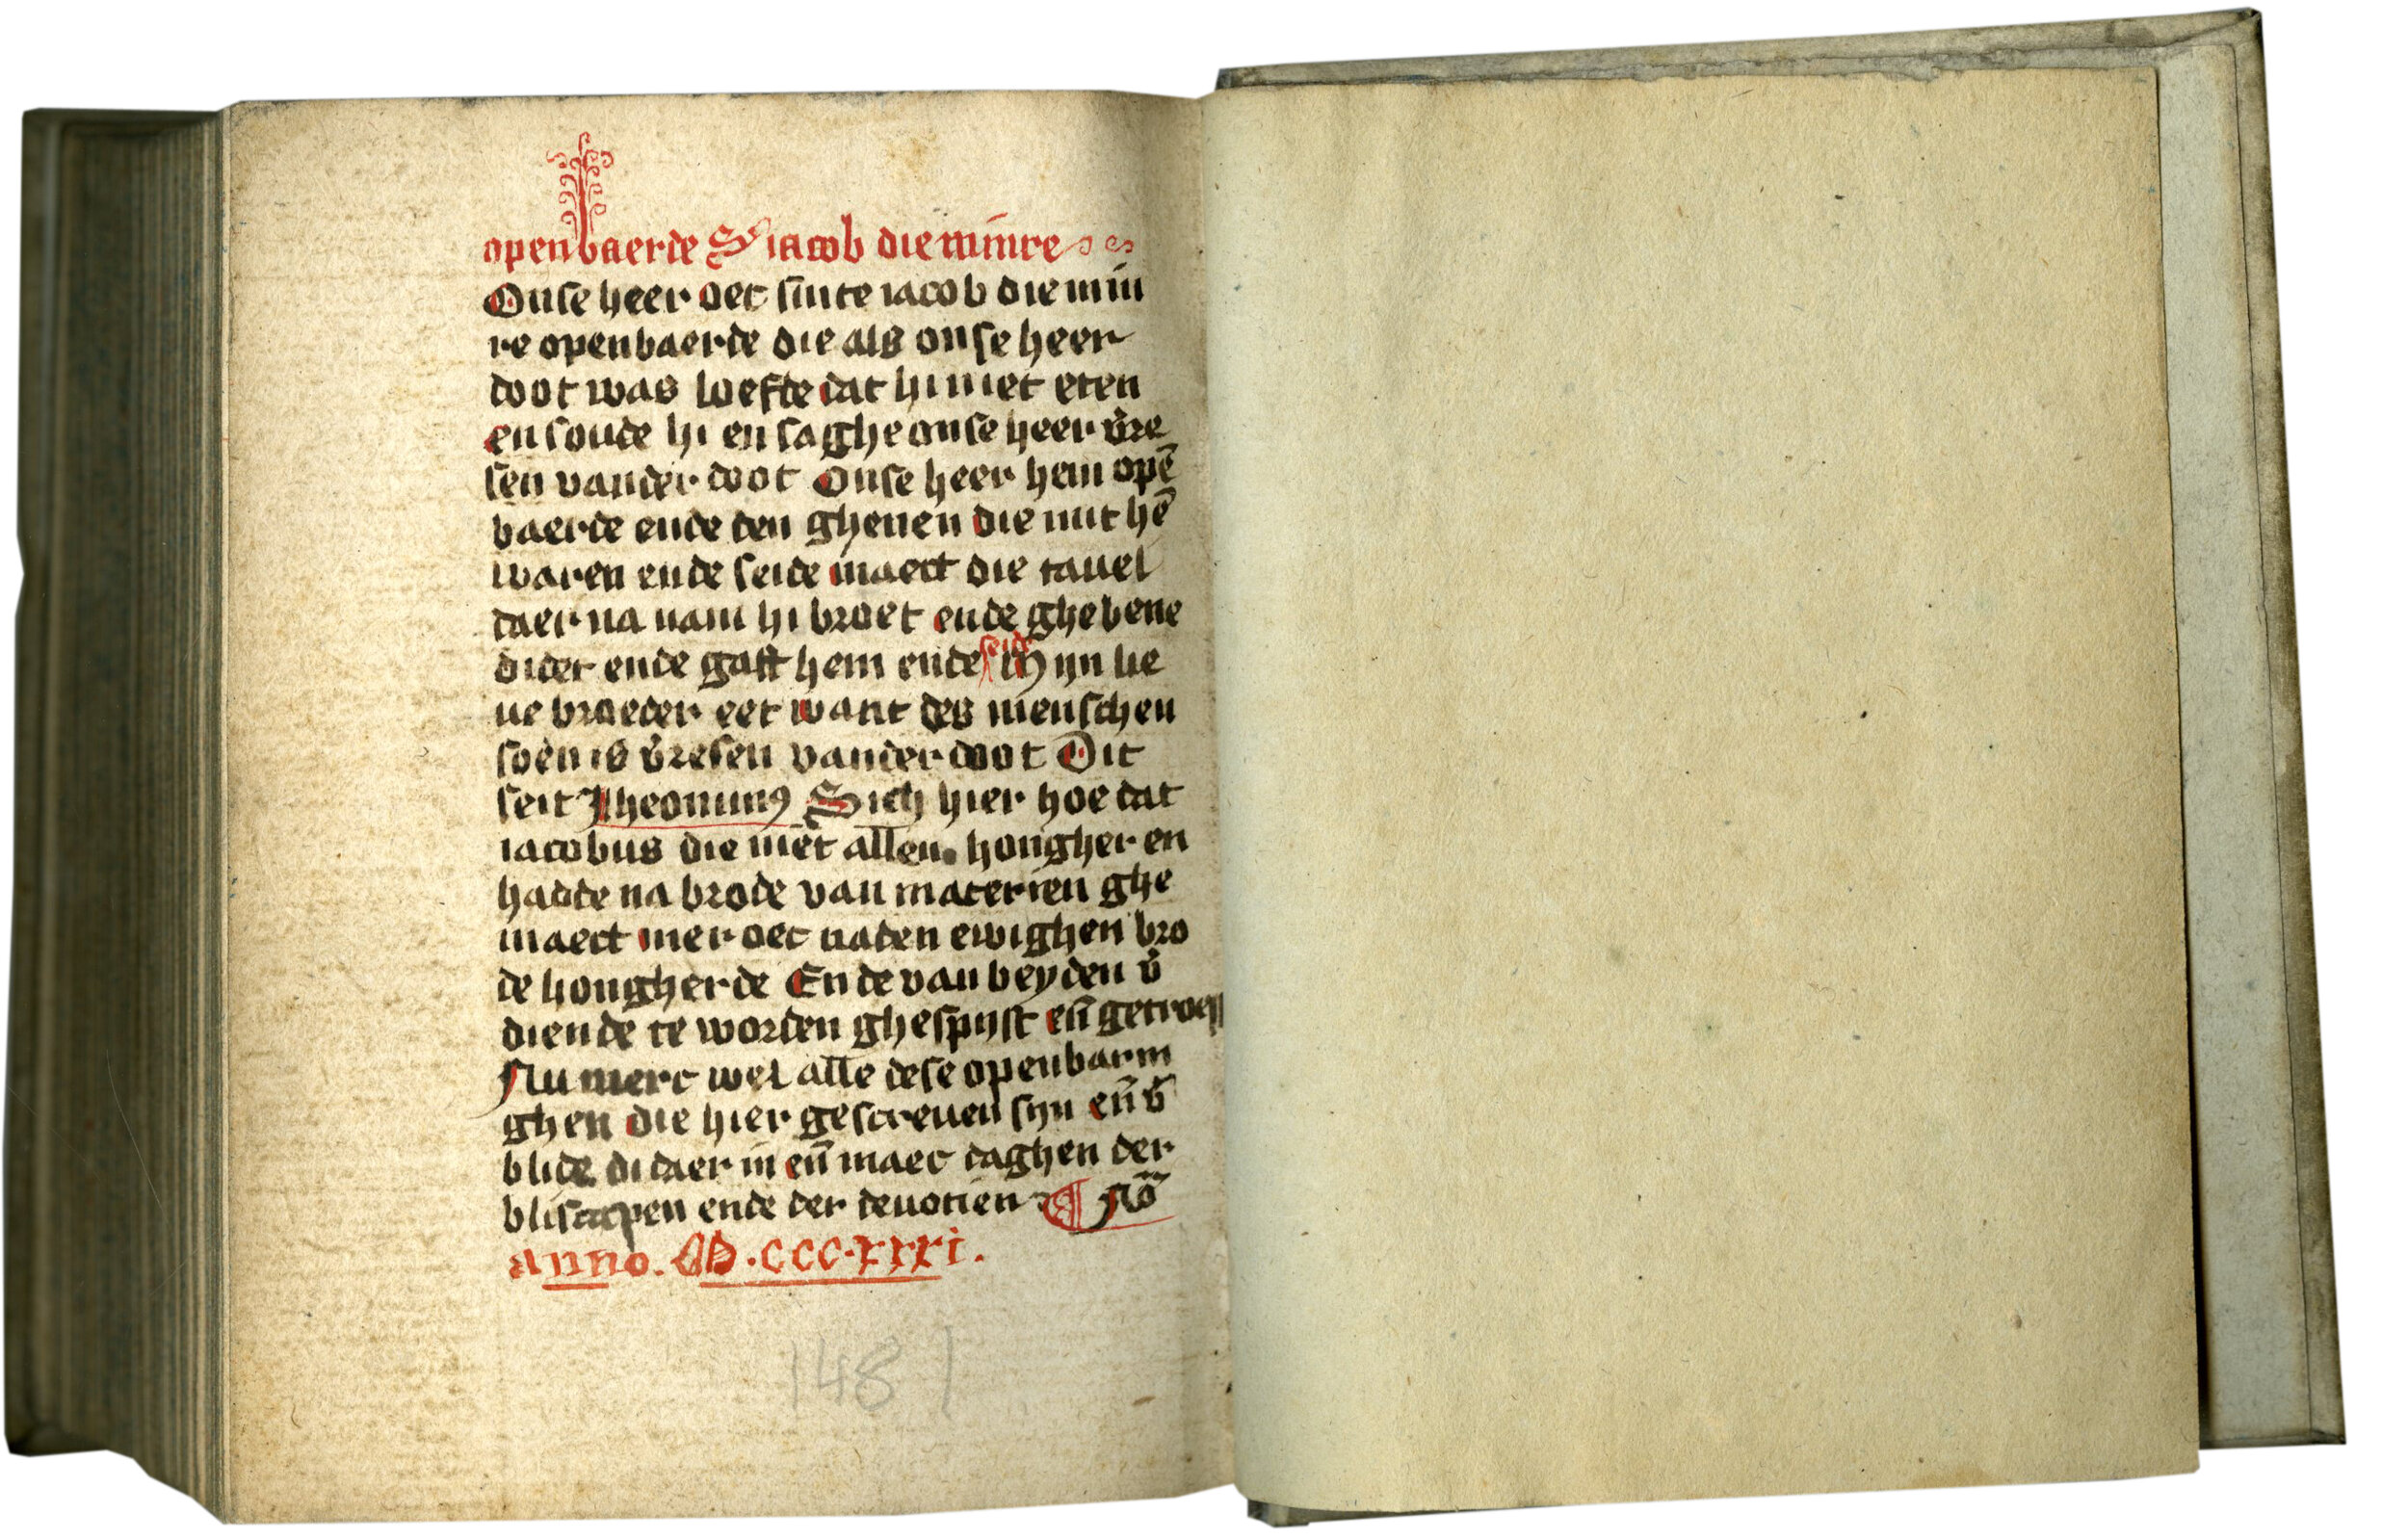 openbaerde S iacob die minre
Onse heer oec sinte iacob die min
re openbaerde die als onse heer
doot was loefde dat hi niet eten
en soude hi en saghe onse heer v̄re
sen vander doot Onse heer hem opē
baerde ende den ghenen die mit hē
waren ende seide maect die tauel
daer na nam hi broet ende ghebene
dider ende gaft hem ende seide Mijn lie
ue broeder eet want des menschen
soen is v̄resen vander doot Dit
seit Jheronimꝰ Sich hier hoe dat
iacobus die niet allen hongher en
hadde na brode van materien ghe
maect mer oec naden ewighen bro
de hongherde Ende van beyden v̄
diende te worden ghespijst eñ getroest
Nu merc wel alle dese openbarin
ghen die hier gescreuen sijn eñ v̄
blide di daer in eñ maec daghen der
bliscapen ende der deuotien ¶ Nō
anno. M.CCC.XXXI.
148